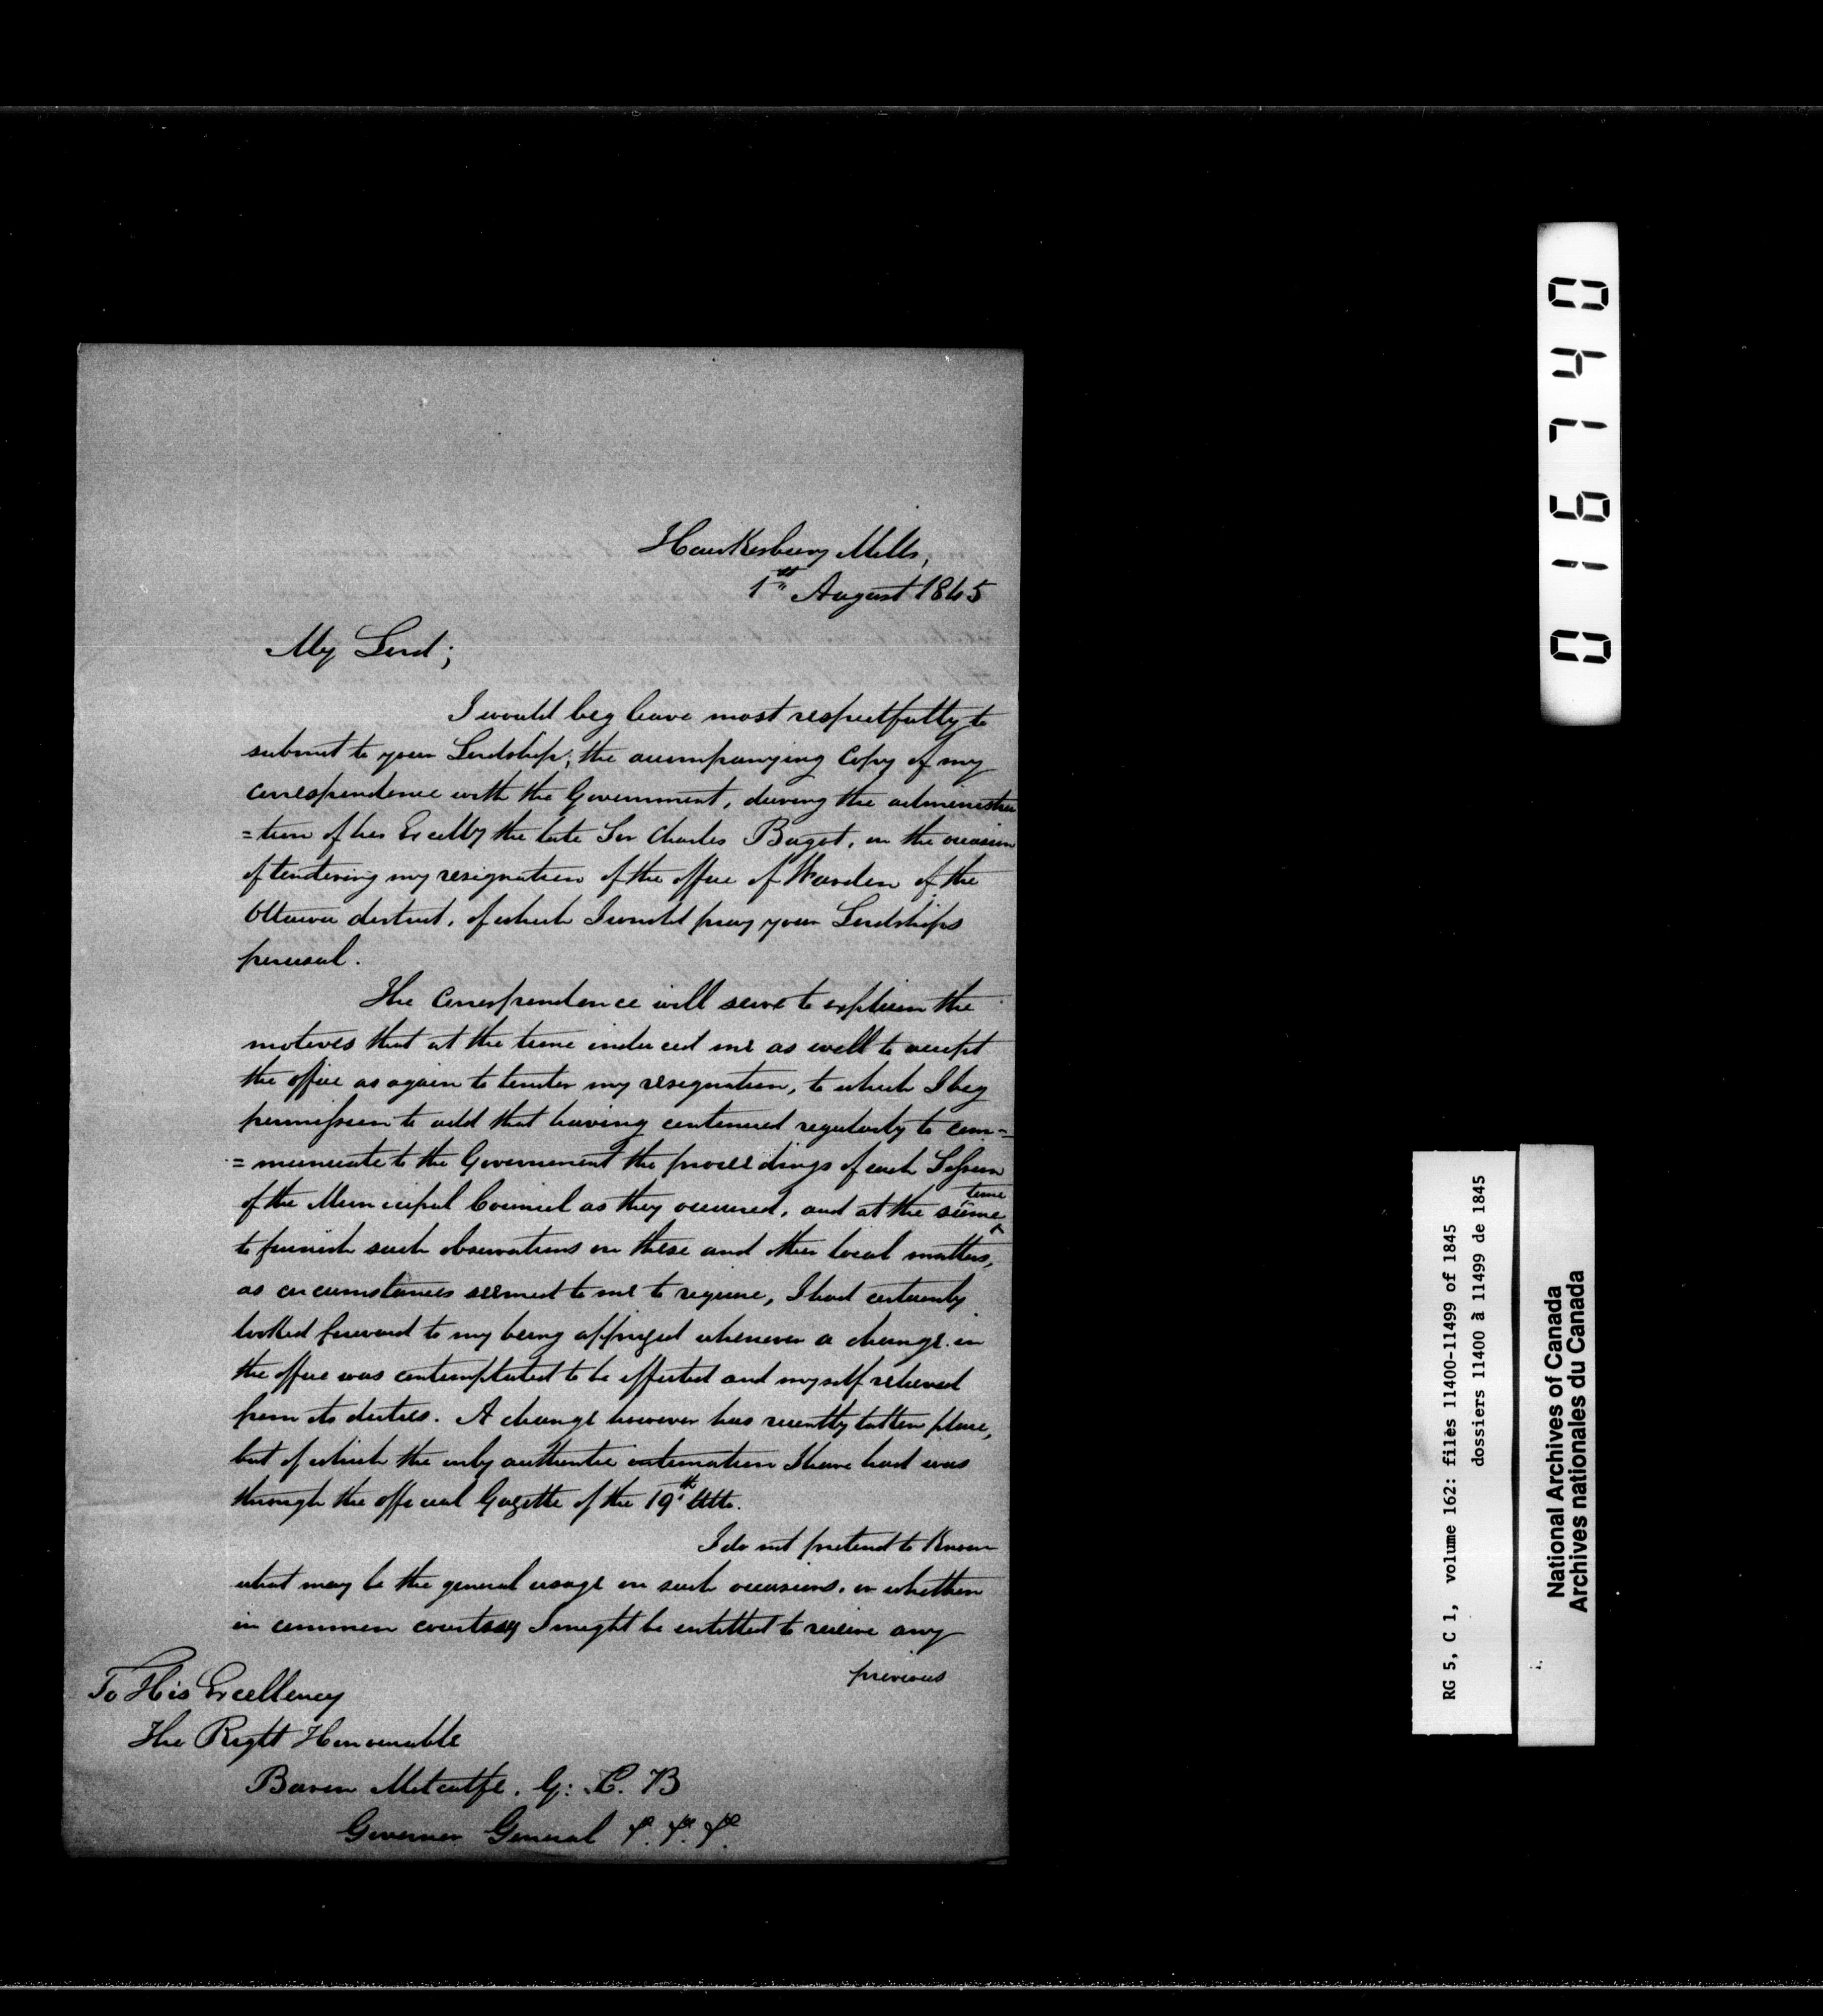 Hawkesbury Mills,
1st August 1845
My Lord;
I would beg leave most respectfully to
submit to your Lordship; the accompanying Copy of my
correspondence with the Government, during the administra
=tion of his Excelly the late Sir Charles Bagot, on the occasion
of tendering my resignation of the office of Warden of the
Ottawa district, of which I would pray your Lordships
perusal.
The Correspondence will serve to explain the
motives that at the time induced me as well to accept
the office as again to tender my resignation, to which I beg
permission to add that having continued regularly to com=
=municate to the Government the proceedings of each Session
of the Municipal Council as they occurred, and at the same time
to furnish such observations on these and other local matters,
as circumstances seemed to me to require, I had certainly
looked forward to my being apprized whenever a change in
the office was contemplated to be effected and myself relieved
from its duties. A change however has recently taken place,
but of which the only authentic intimation I have had was
through the official Gazette of the 19th Ulto.
I do not pretend to Know
what may be the general usage on such occasions, or whether
in common courtesy I might be entitled to receive any
previous
To His Excellency
The Right Honourable
Baron Metcalfe. G: C. B
Governor General &c. &c. &c.
0 1 9 7 4 0
RG 5, C 1, volume 162: files 11400-11499 of 1845
dossiers 11400 à 11499 de 1845
National Archives of Canada
Archives nationales du Canada